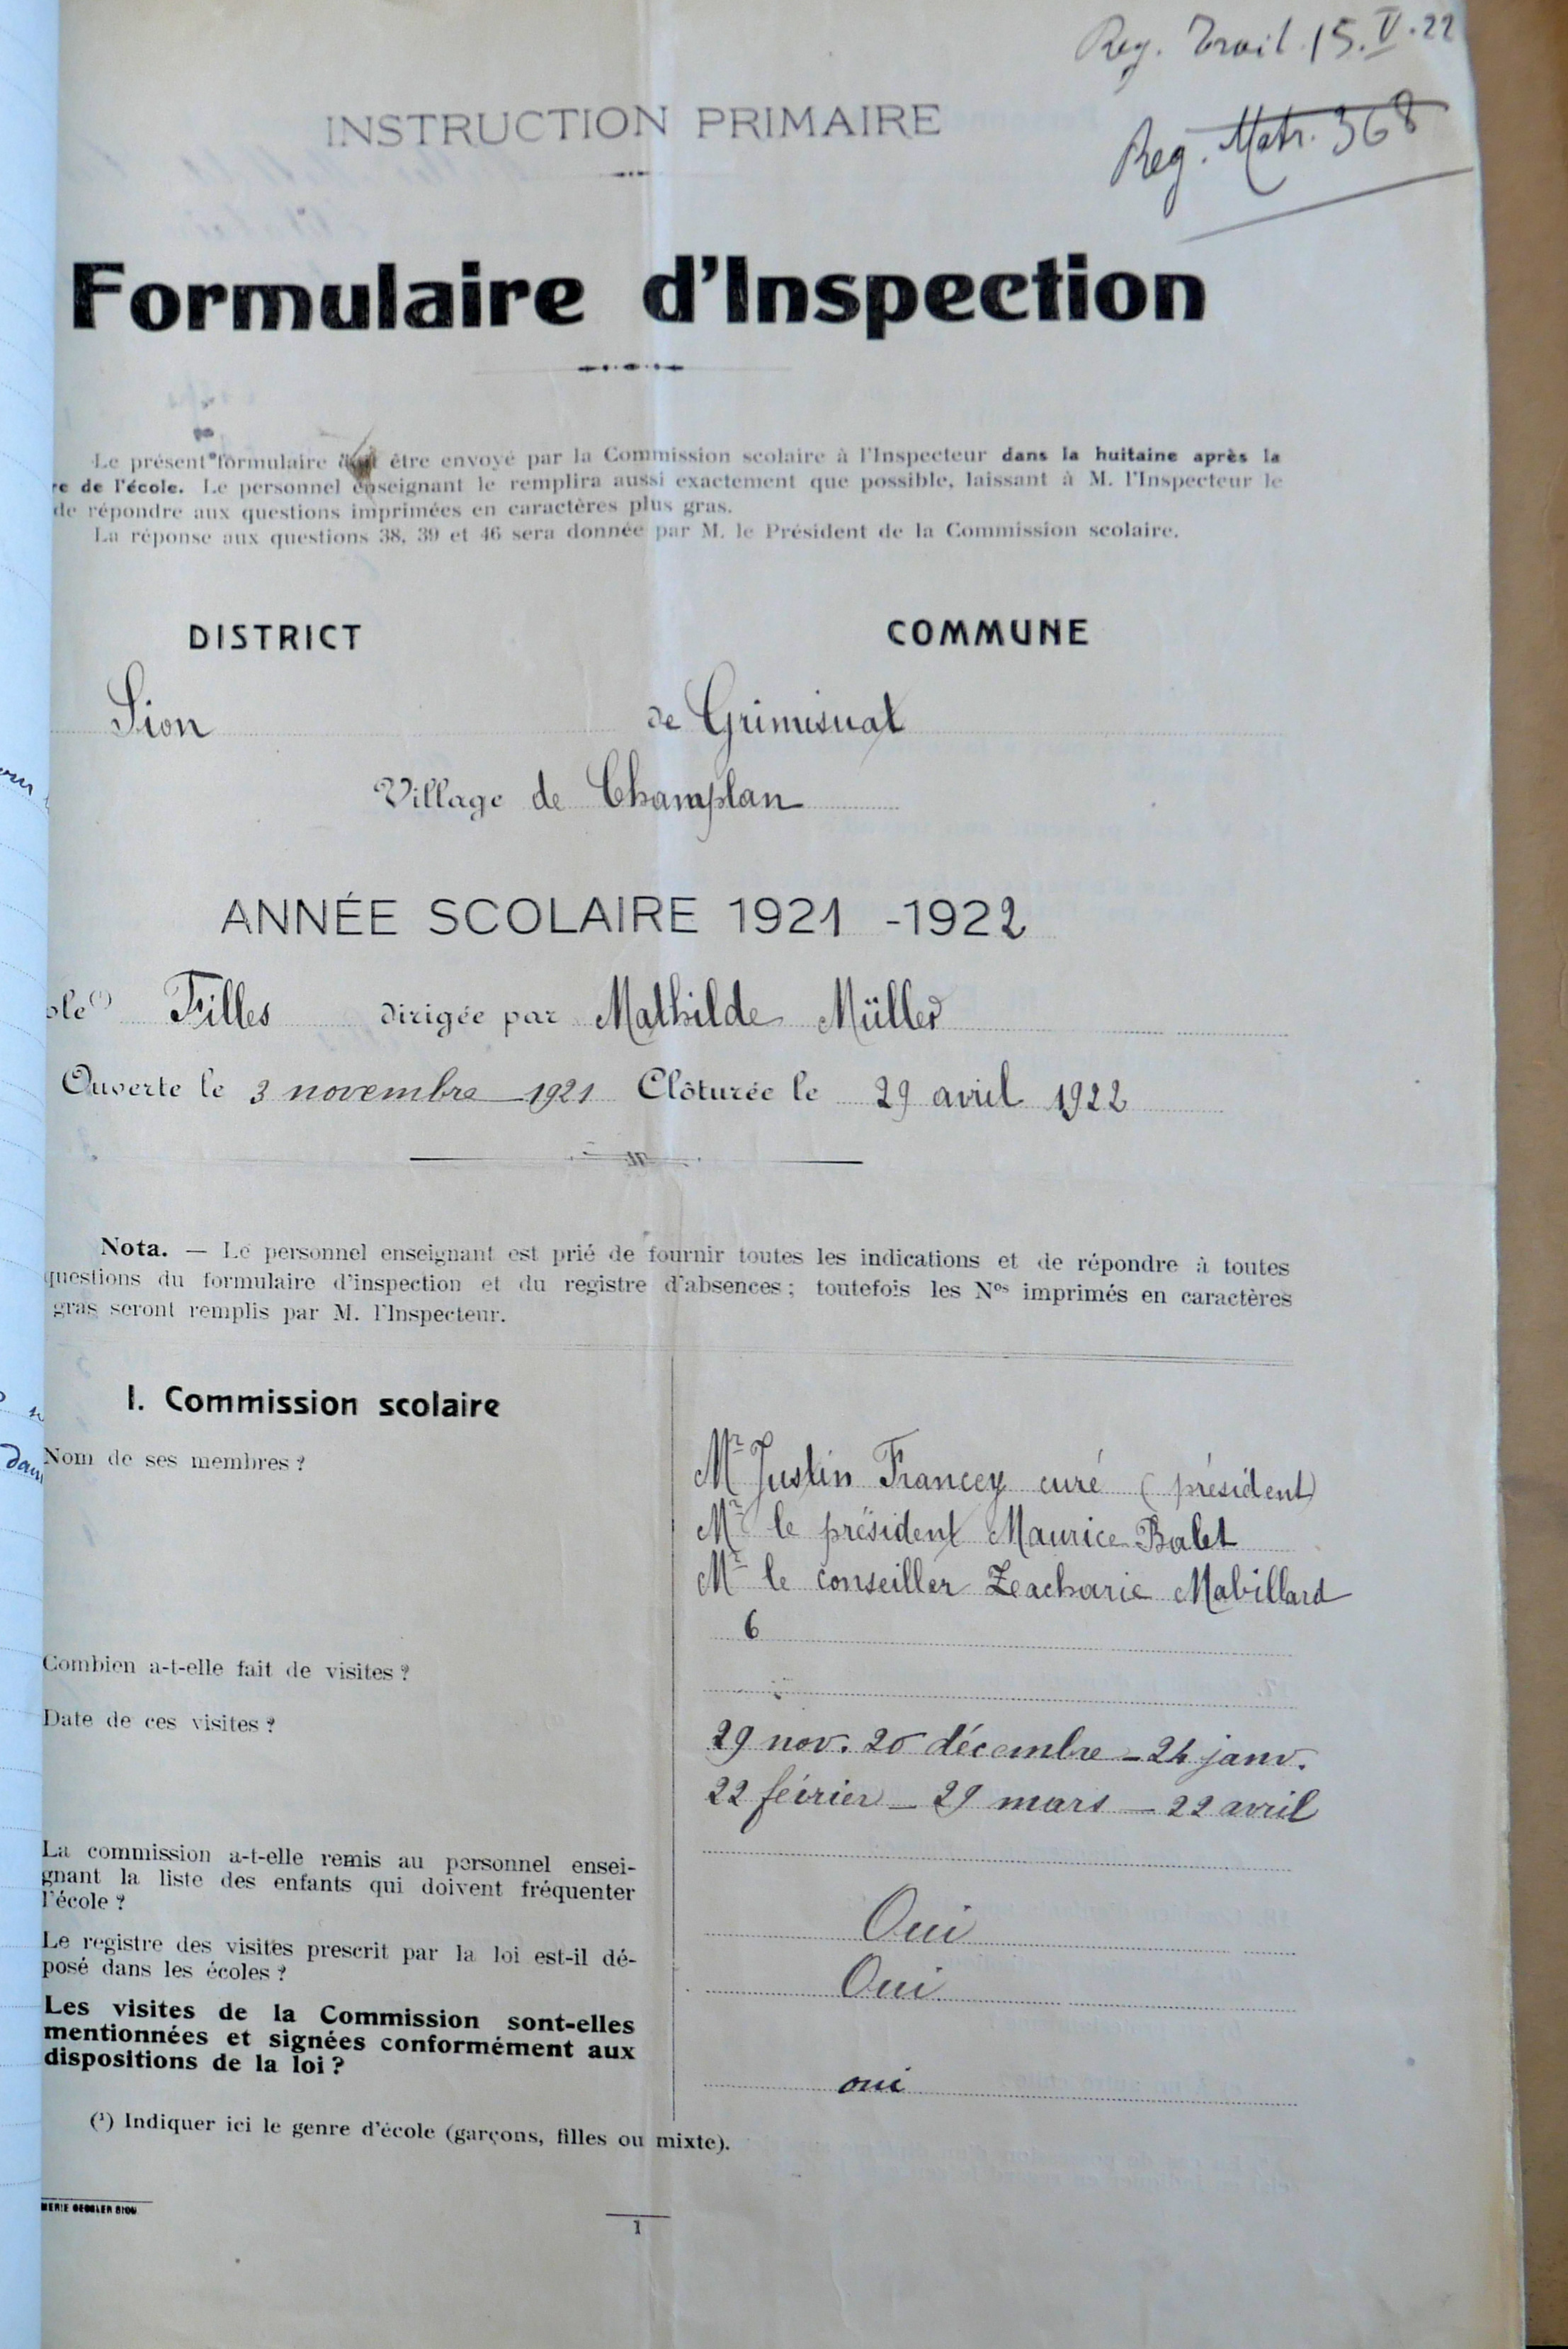 Reg. Trait. 15.V.22
Reg. Matr. 368
INSTRUCTION PRIMAIRE
Formulaire d'Inspection
Le présent formulaire doit être envoyé par la Commission scolaire à l'Inspecteur dans la huitaine après la
re de l'école. Le personnel enseignant le remplira aussi exactement que possible, laissant à M. l'Inspecteur le
de répondre aux questions imprimées en caractères plus gras.
La réponse aux questions 38, 39 et 46 sera donnée par M. le Président de la Commission scolaire.
DISTRICT COMMUNE
Sion de Grimisuat
Village de Champlan
ANNÉE SCOLAIRE 1921 -1922
ole (1) Filles dirigée par Mathilde Müller
Ouverte le 3 novembre 1921 Clôturée le 29 avril 1922
Nota. — Le personnel enseignant est prié de fournir toutes les indications et de répondre à toutes
questions du formulaire d'inspection et du registre d'absences ; toutefois les Nos imprimés en caractères
gras seront remplis par M. l'Inspecteur.
I. Commission scolaire
Nom de ses membres ?
Mr Justin Francey curé (président)
Mr le président Maurice Balet
Mr le conseiller Zeacharie Mabillard
6
Combien a-t-elle fait de visites ?
Date de ces visites ?
29 nov. 20 décembre – 24 janv.
22 février – 29 mars – 22 avril
La commission a-t-elle remis au personnel ensei-
gnant la liste des enfants qui doivent fréquenter
l'école ?
Oui
Le registre des visites prescrit par la loi est-il dé-
posé dans les écoles ?
Oui
Les visites de la Commission sont-elles
mentionnées et signées conformément aux
dispositions de la loi ?
oui
(1) Indiquer ici le genre d'école (garçons, filles ou mixte).
MERIE GESSLER SION
1